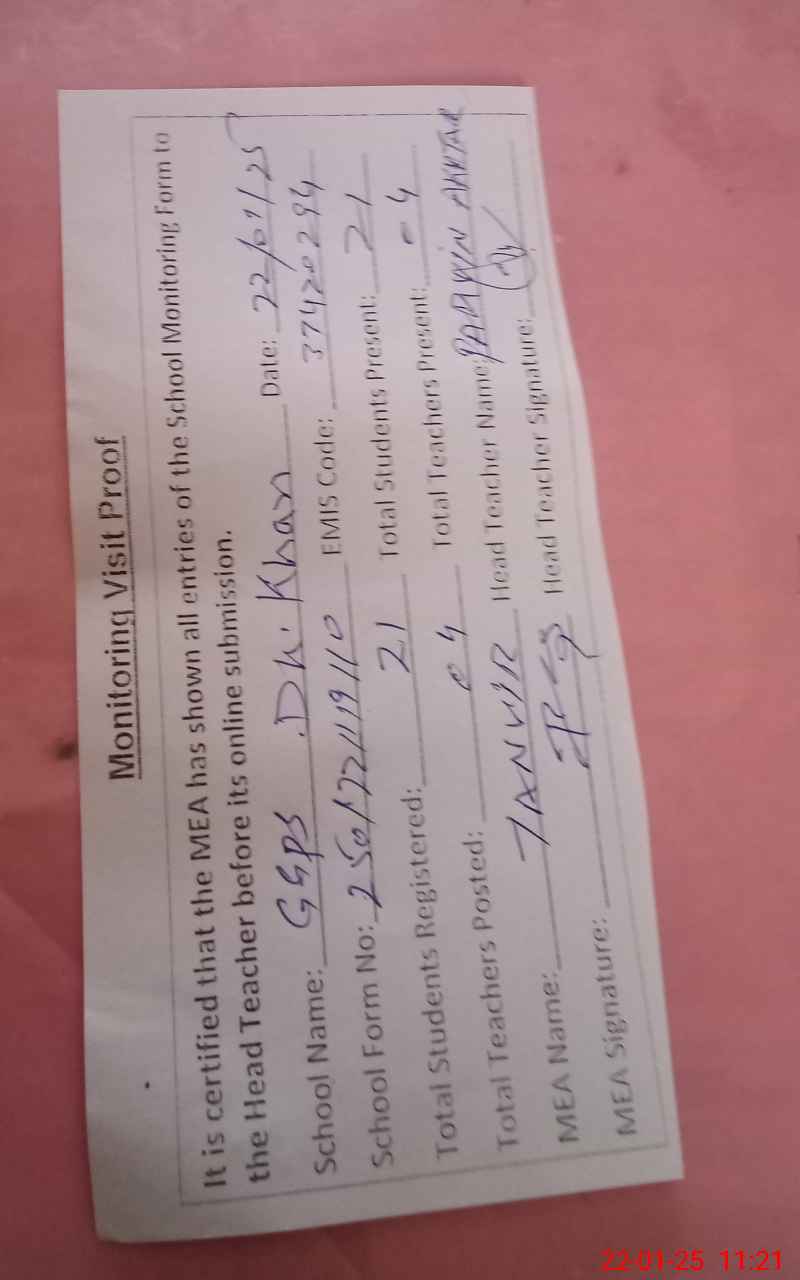 Monitoring Visit Proof
It is certified that the MEA has shown all entries of the School Monitoring Form to
the Head Teacher before its online submission.
School Name: GGPS Dh. Khan Date: 22/01/25
School Form No: 2501221119110 EMIS Code: 37420294
Total Students Registered: 21 Total Students Present: 21
Total Teachers Posted: 04 Total Teachers Present: 04
MEA Name: TANVIR Head Teacher Name: PARWIN AKHTAR
MEA Signature: Head Teacher Signature:
22-01-25 11:21